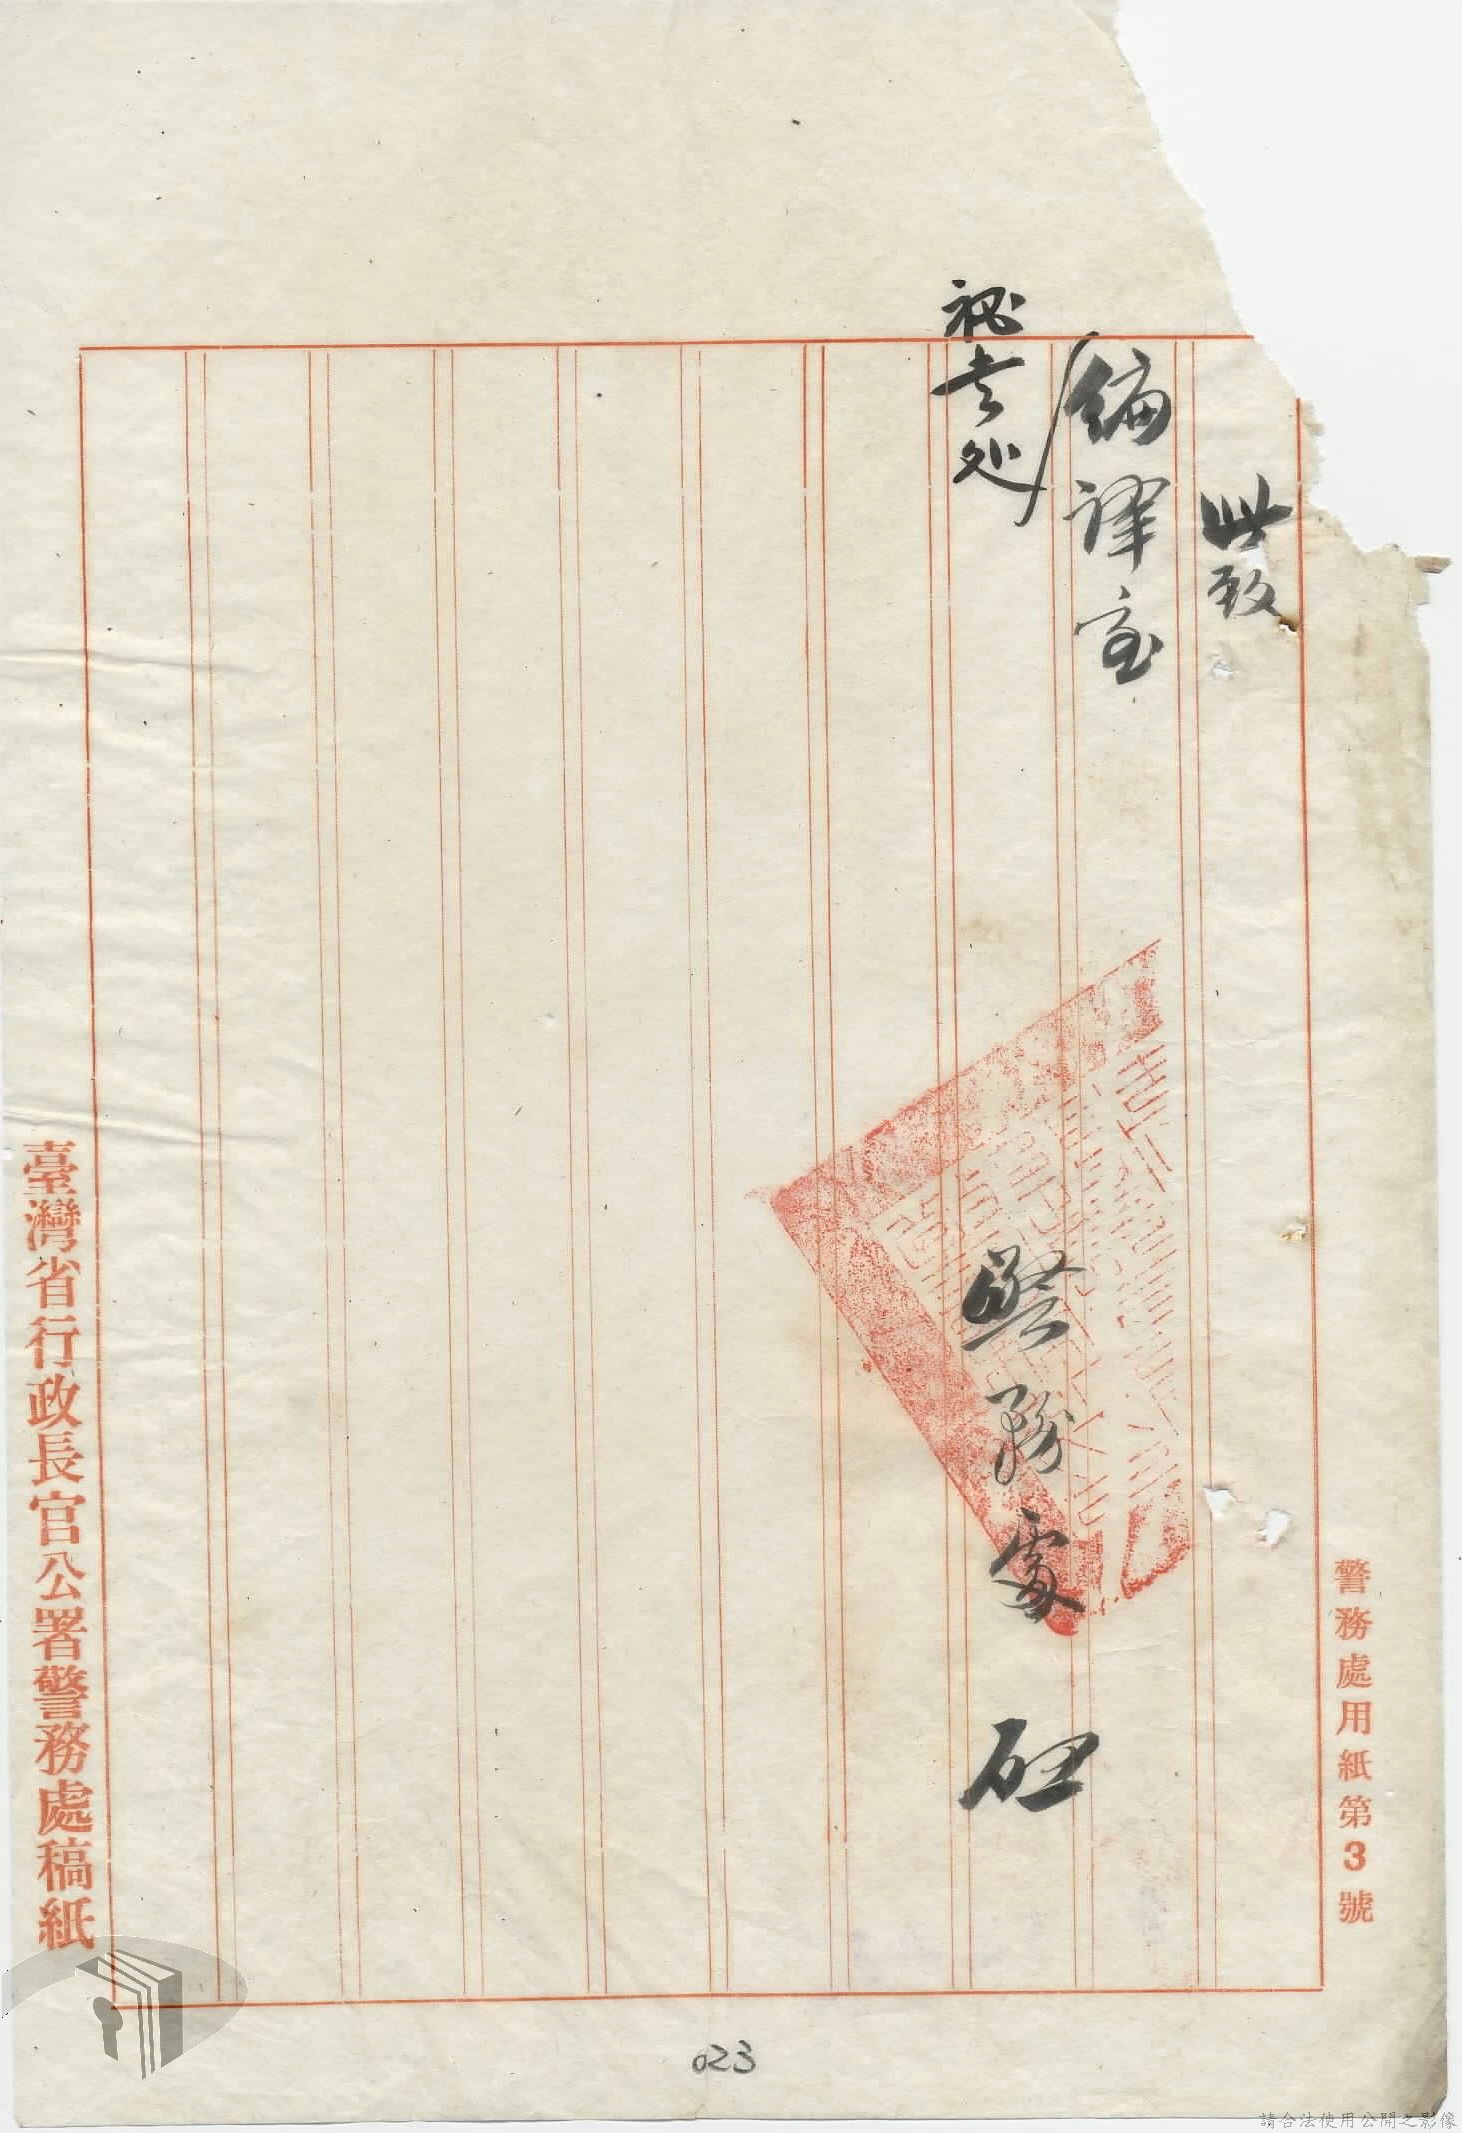 警務處用紙第3號
此致
編譯室
秘書处
警務處 啟
臺灣省行政長官公署警務處稿紙
023
請合法使用公開之影像